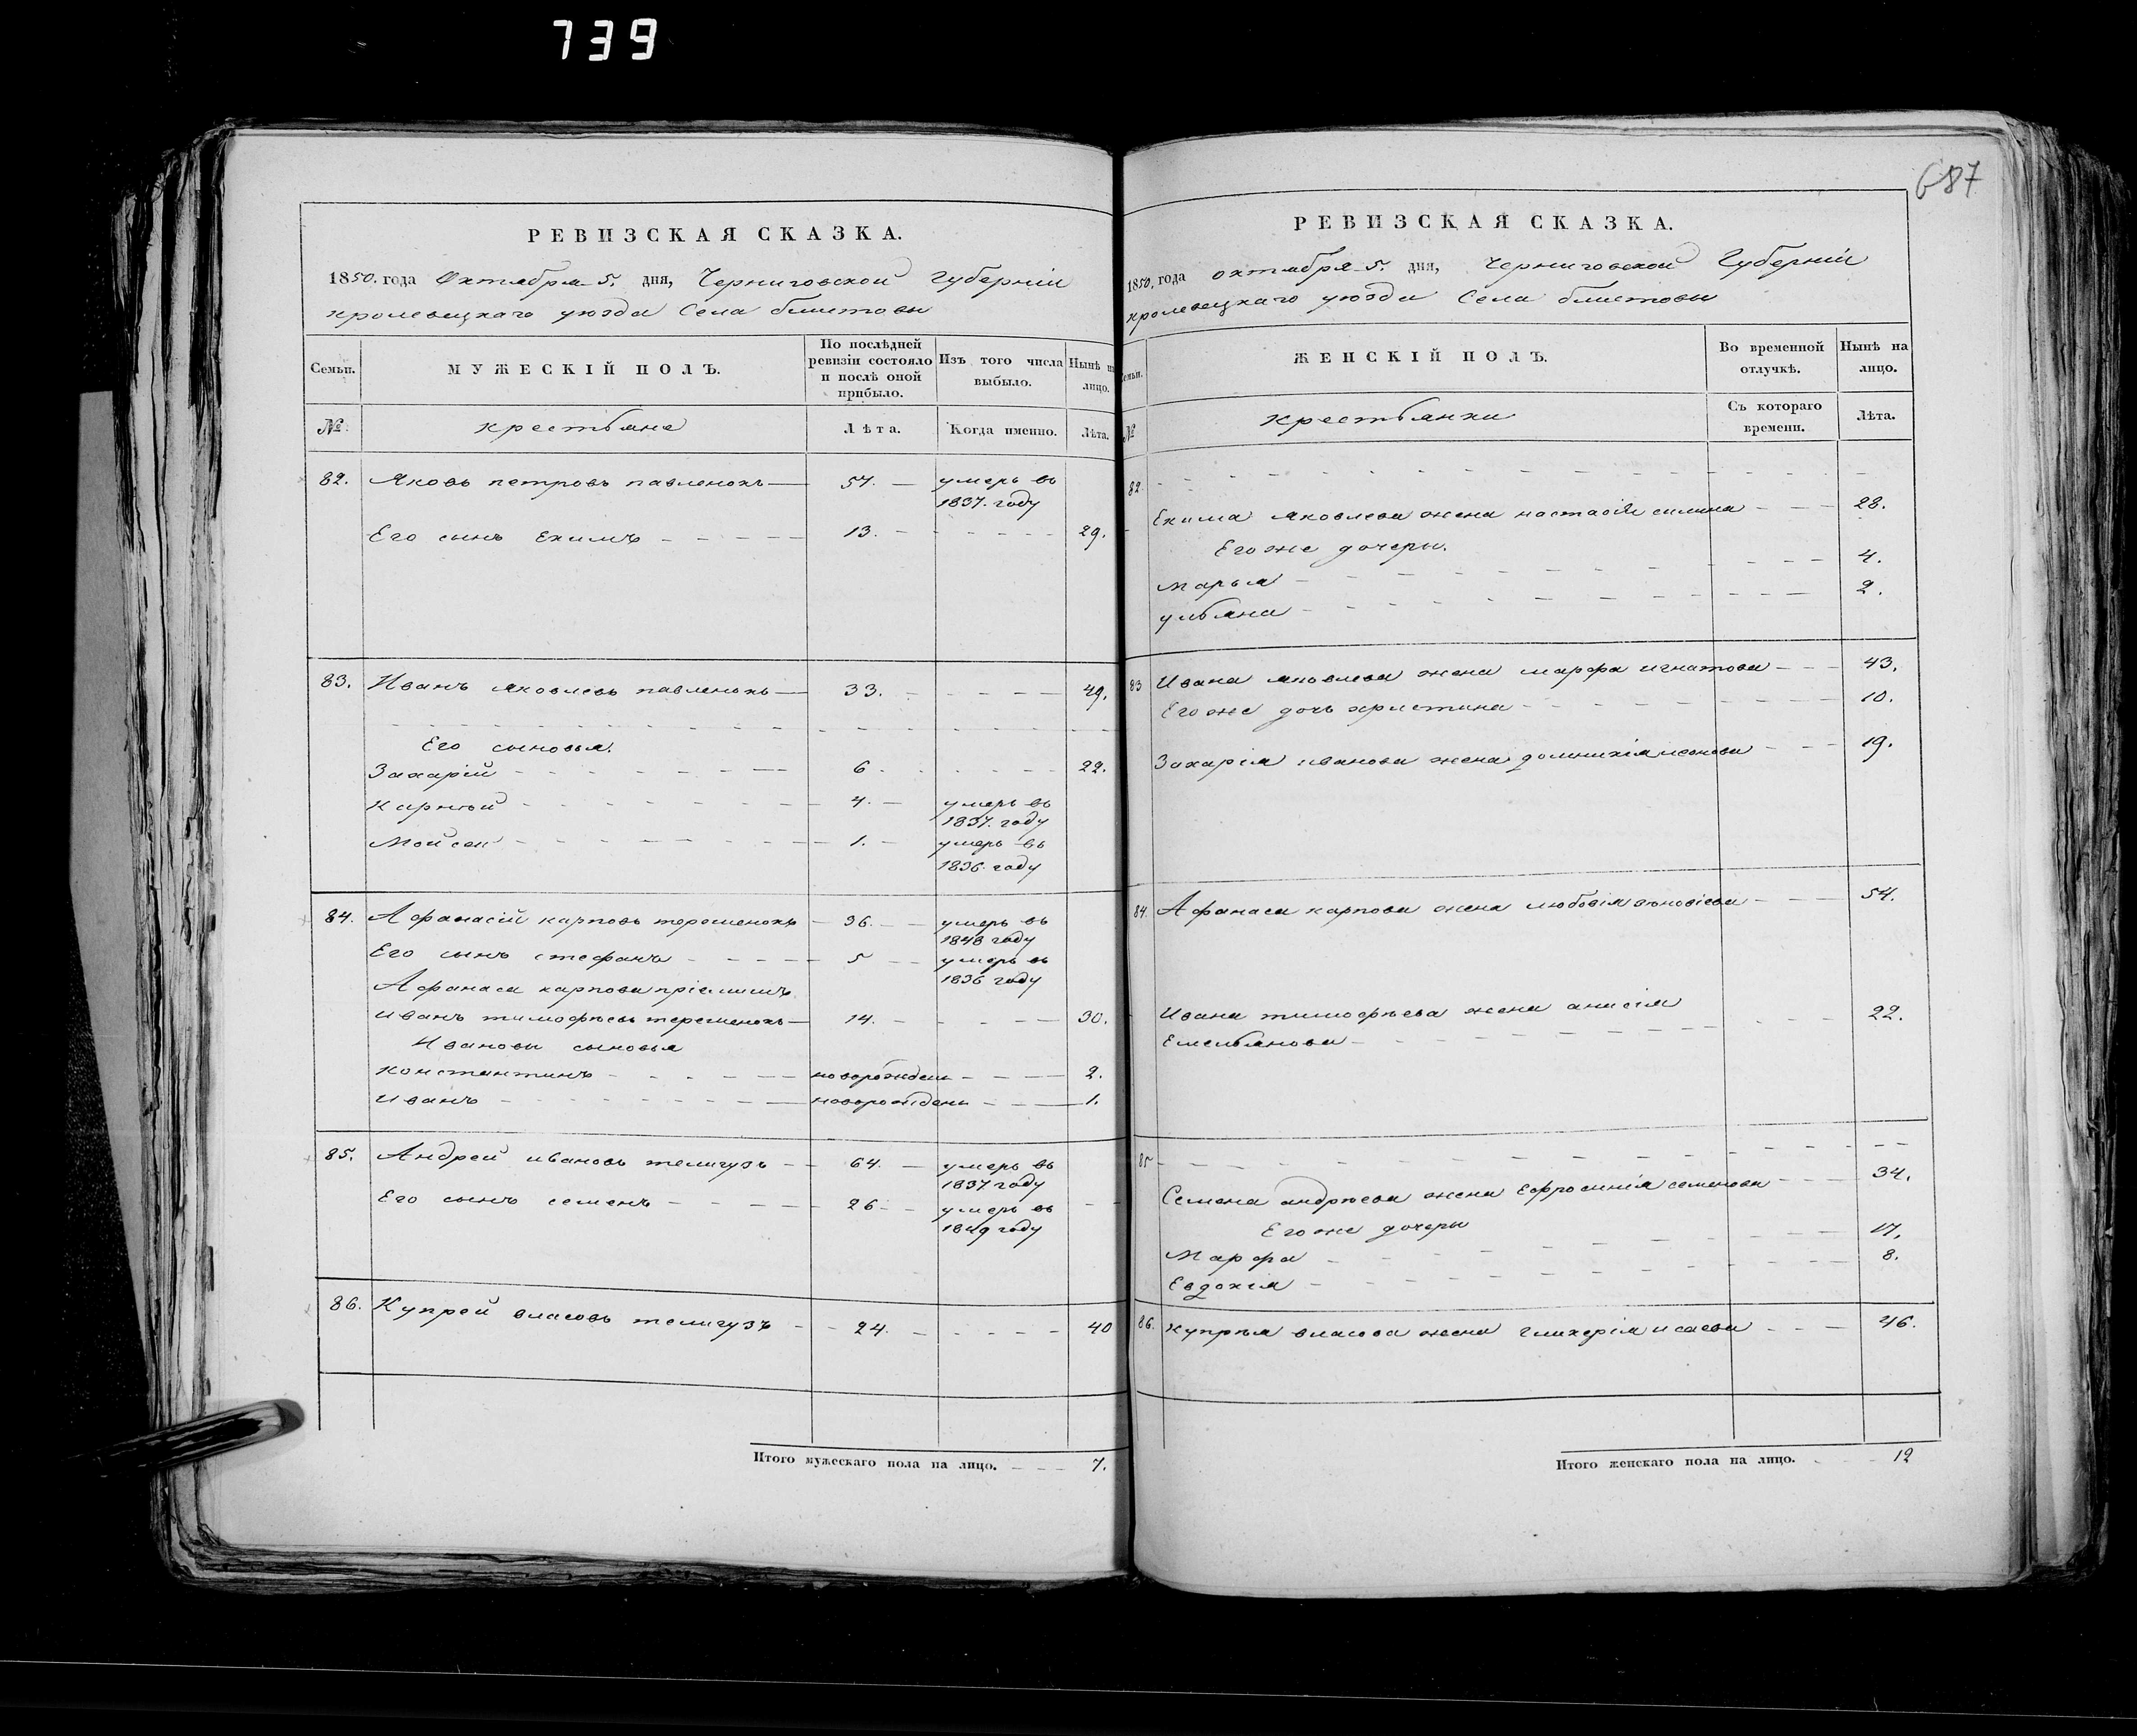 739
687
РЕВИЗСКАЯ СКАЗКА.
1850. года Октября 5. дня, Черниговской Губернии
кролевецкаго уезда Села блистовы
Семьи. МУЖЕСКІЙ ПОЛЪ. По послѣдней ревизіи состояло и послѣ оной прибыло. Изъ того числа выбыло. Нынѣ на лицо.
№ крестьяне Лѣта. Когда именно. Лѣта.
82. Яковъ петровъ павленокъ 57. умеръ въ
1837. году
Его сынъ Екимъ 13. 29.
83. Иванъ яковлевъ павленокъ 33. 49.
Его сыновья.
Захарій 6 22.
Карпѣй 4. умеръ въ
1837. году
Мойсей 1. умеръ въ
1836. году
84. Афанасій карповъ терешенокъ 36. умеръ въ
1848 году
Его сынъ стефанъ 5 умеръ въ
1836 году
Афанаса карпова пріемышъ
иванъ тимофѣевъ терешенокъ 14. 30.
Ивановы сыновья
константинъ новорожденъ 2.
иванъ новорожденъ 1.
85. Андрей ивановъ телигузъ 64. умеръ въ
1837 году
Его сынъ семенъ 26 умеръ въ
1849 году
86. Купрей власовъ телигузъ 24. 40
Итого мужескаго пола на лицо. 7.
РЕВИЗСКАЯ СКАЗКА.
1850, года октября 5. дня, Черниговской Губерніи
кролевецкаго уезда Села блистовы
Семьи. ЖЕНСКІЙ ПОЛЪ. Во временной отлучкѣ. Нынѣ на лицо.
№ крестьянки Съ котораго времени. Лѣта.
82.
Екима яковлева жена настасія силина 28.
Его же дочери.
марья 4.
ульяна 2.
83 Ивана яковлева жена марфа игнатова 43.
Его же дочь христина 10.
Захарія иванова жена домникія леонова 19.
84. Афанаса карпова жена любовія 54.
Ивана тимофѣева жена анисія
Емельянова 22.
85
Семена андрѣева жена Ефросинія семенова 34.
Его же дочери
Марфа 17.
Евдокія 8.
86. купрѣя власова жена гликерія исаева 46.
Итого женскаго пола на лицо. 12